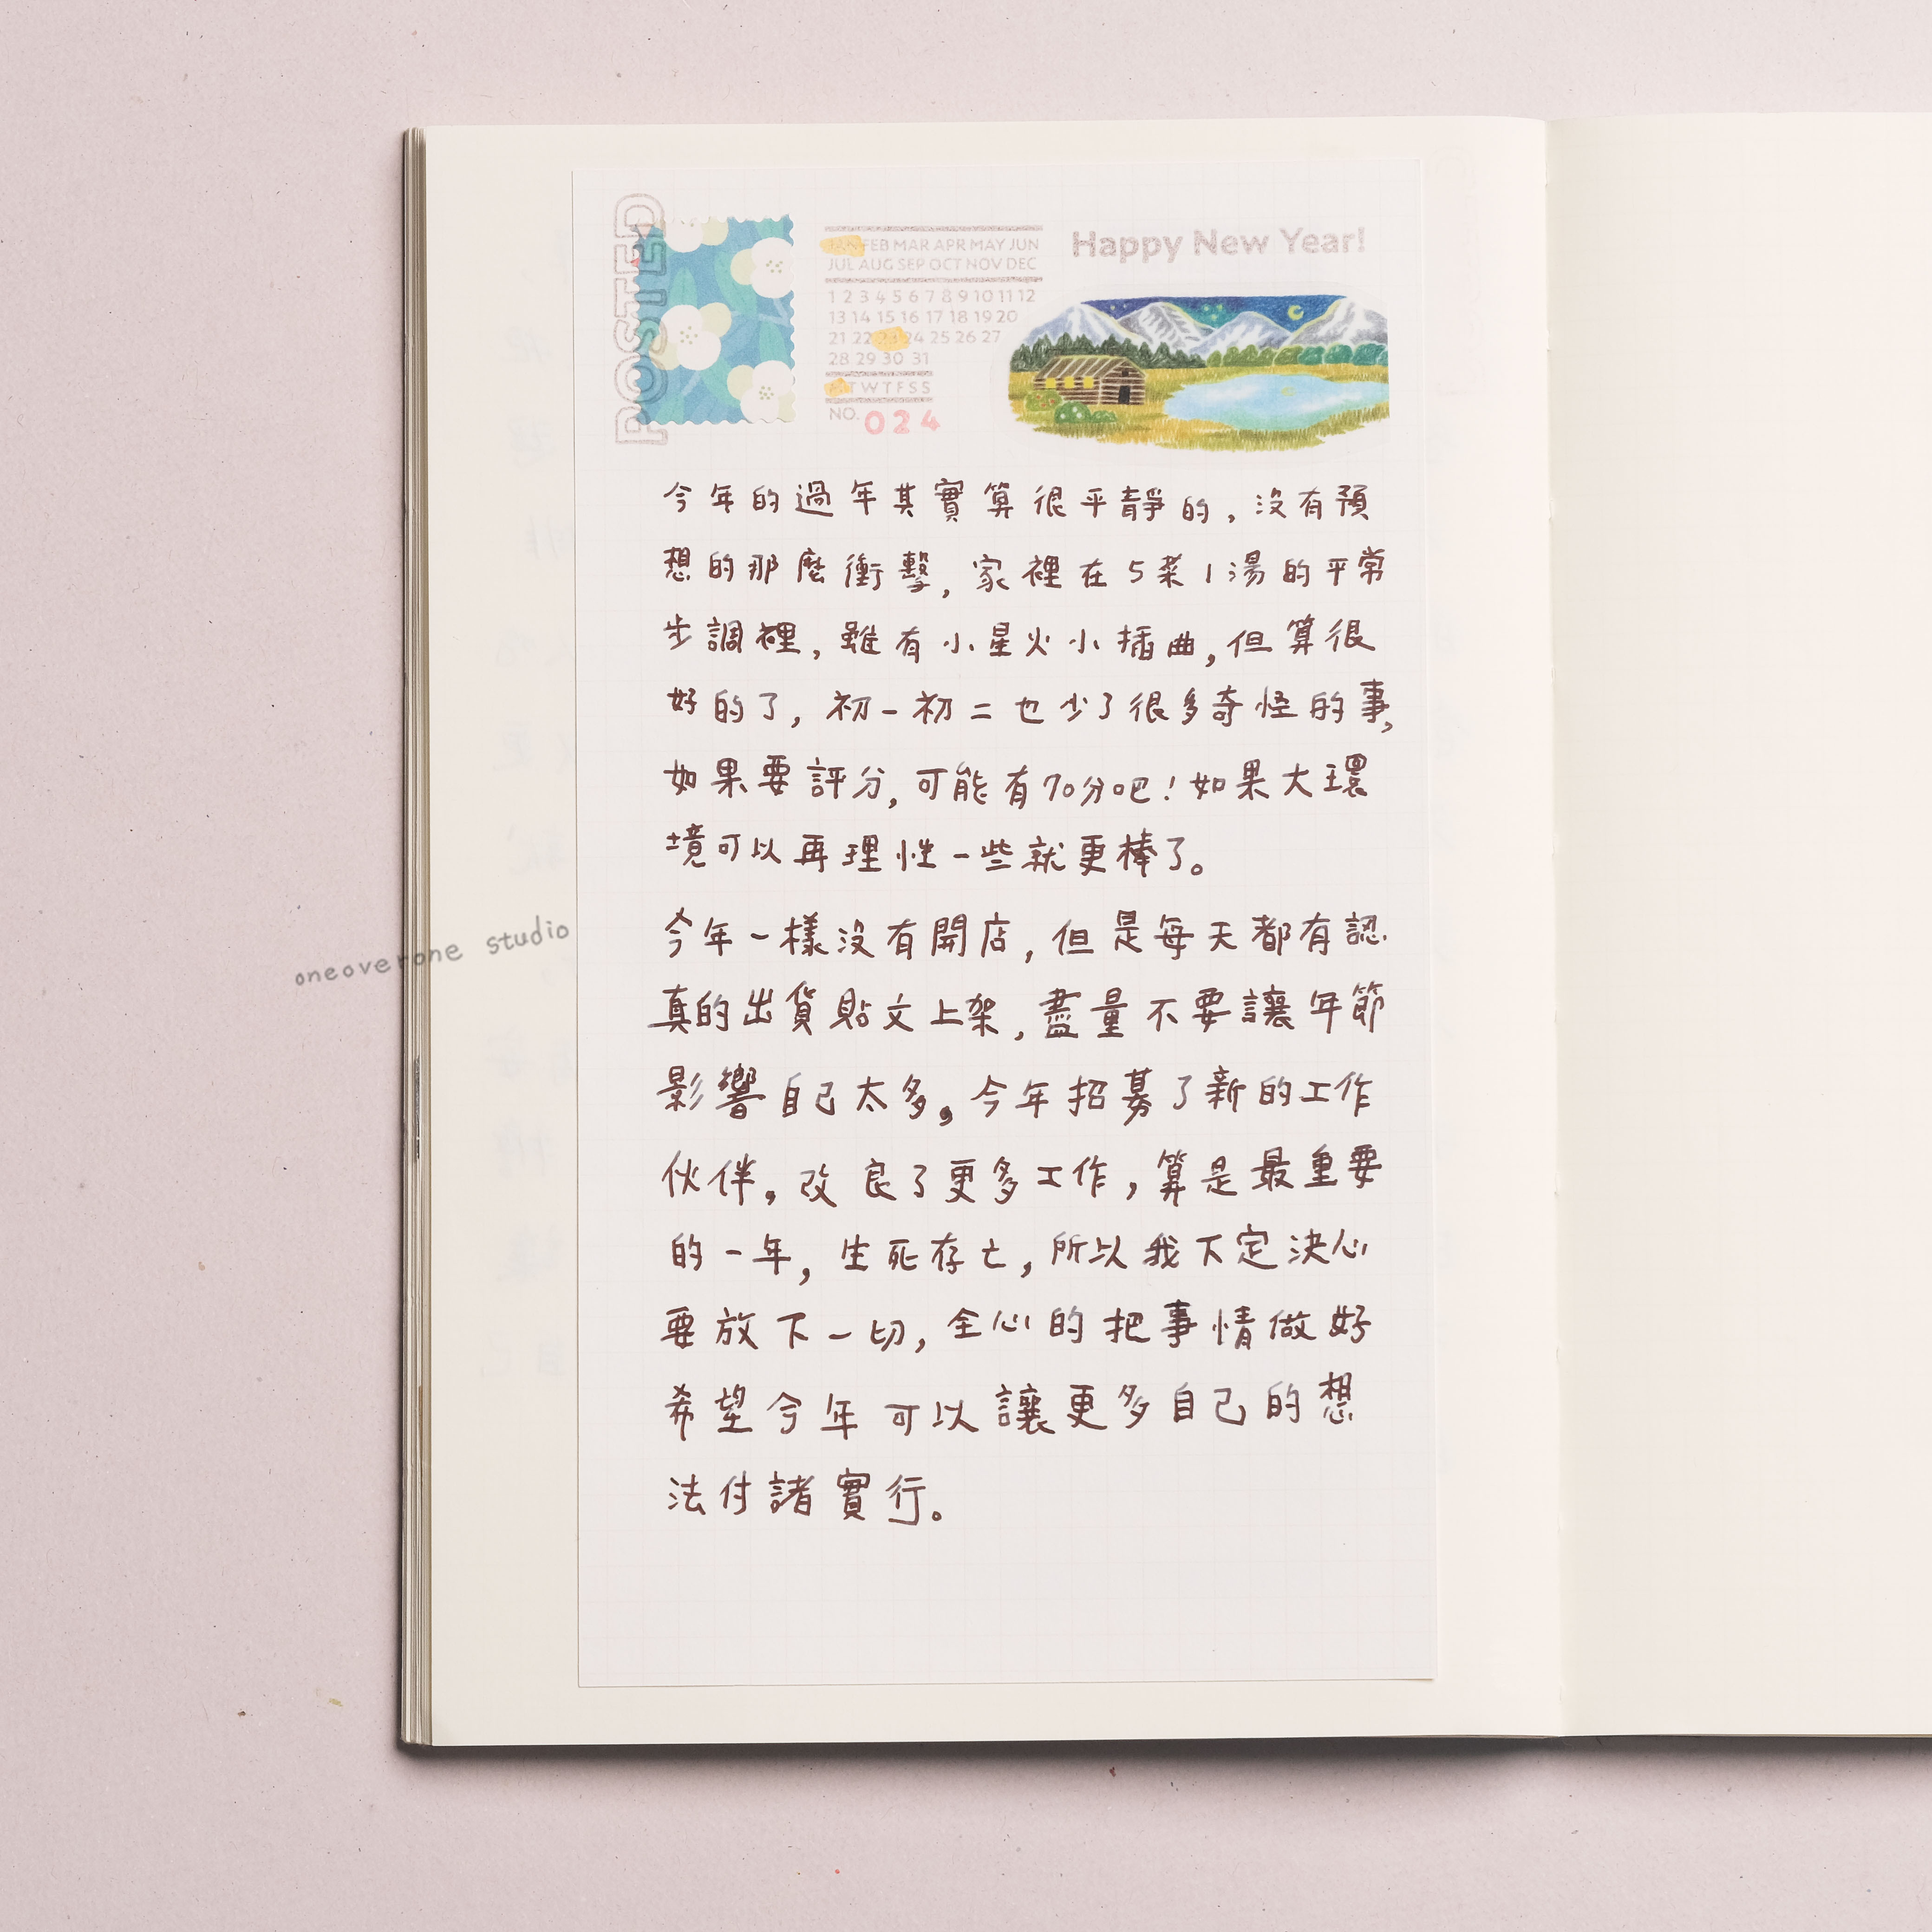 POSTED
JAN FEB MAR APR MAY JUN
JUL AUG SEP OCT NOV DEC
1 2 3 4 5 6 7 8 9 10 11 12
13 14 15 16 17 18 19 20
21 22 23 24 25 26 27
28 29 30 31
M T W T F S S
NO. 024
Happy New Year!
今年的過年其實算很平靜的，沒有預
想的那麼衝擊，家裡在5菜1湯的平常
步調裡，雖有小星火小插曲，但算很
好的了，初一初二也少了很多奇怪的事，
如果要評分，可能有70分吧！如果大環
境可以再理性一些就更棒了。
今年一樣沒有開店，但是每天都有認
真的出貨貼文上架，盡量不要讓年節
影響自己太多，今年招募了新的工作
伙伴，改良了更多工作，算是最重要
的一年，生死存亡，所以我下定決心
要放下一切，全心的把事情做好
希望今年可以讓更多自己的想
法付諸實行。
oneoverone studio